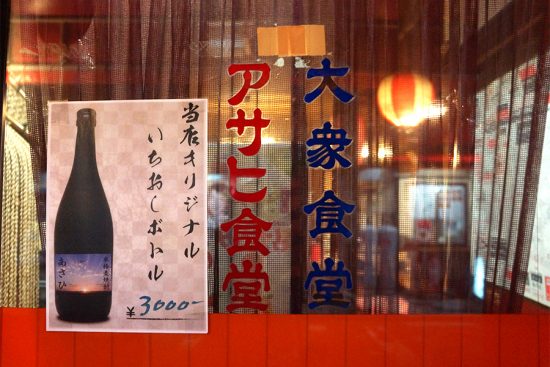 大衆食堂
アサヒ食堂
当店オリジナル
いちおしボトル
¥3000-
あさひ